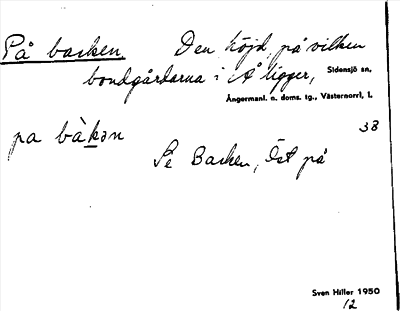 På backen. Den höjd, på vilken
bondgårdarna i Å ligger, Sidensjö sn,
Ångermanl. n. doms. tg., Västernorrl. l.
pa bàkən 38
Se Backen, Öst på
Sven Hiller 1950
12